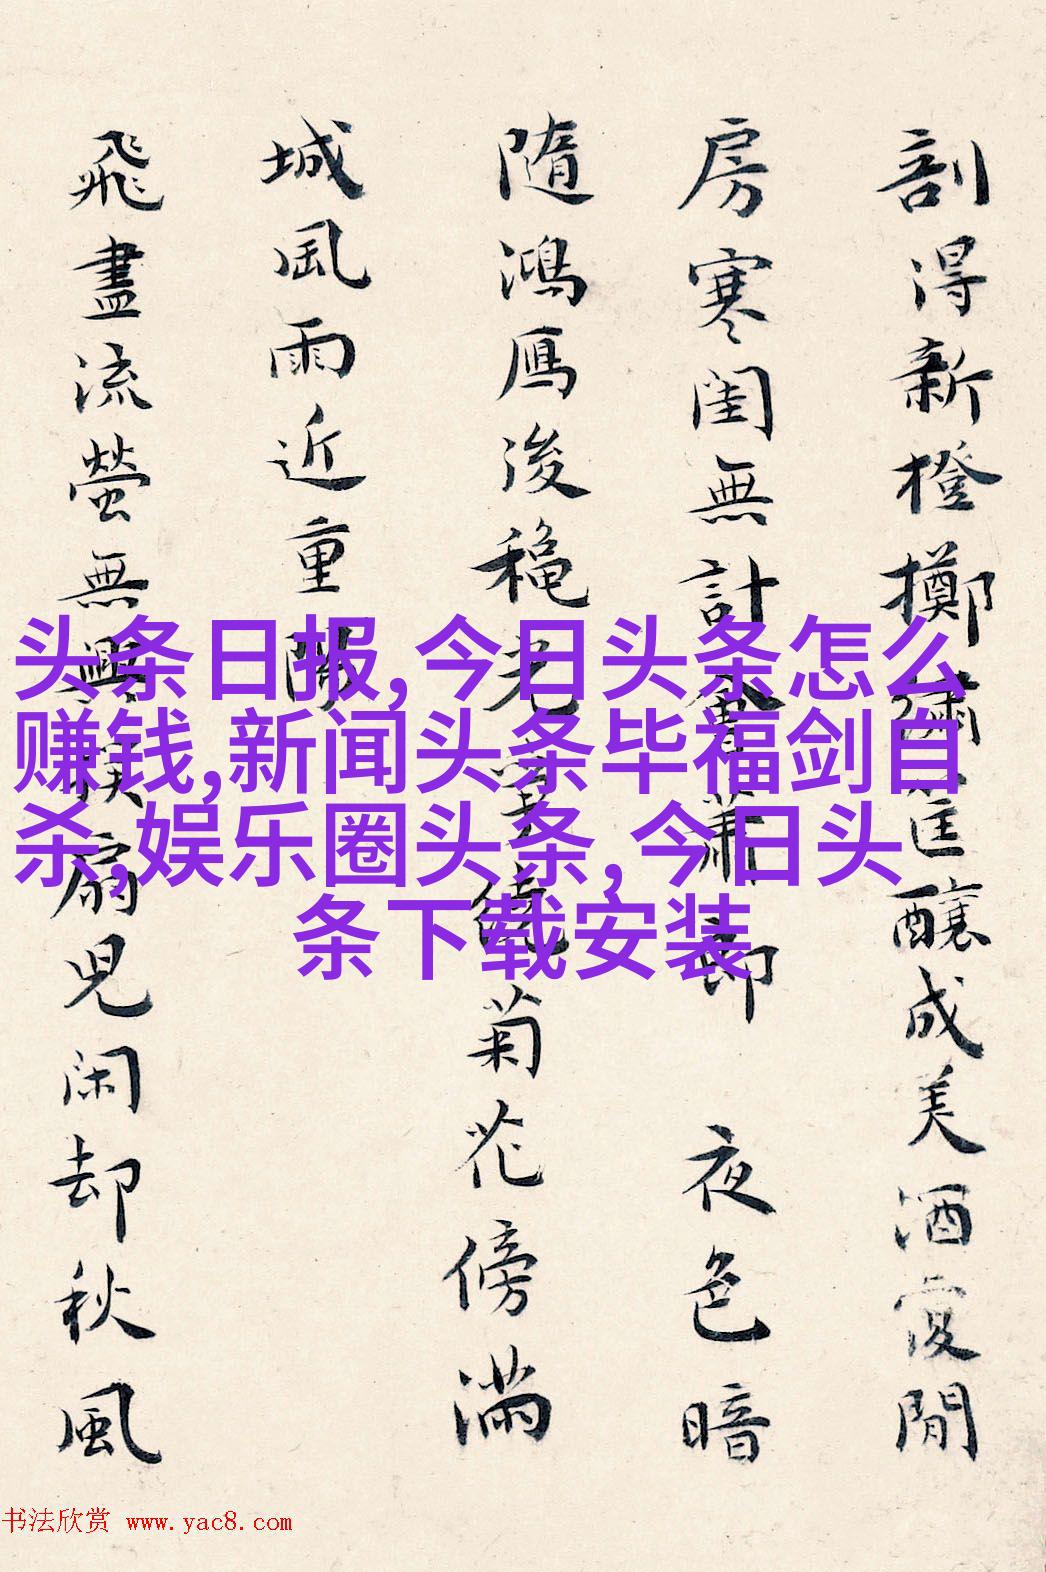 剖得新橙擲筐釀成美酒復閒
房寒閨無計會蕭郎 夜色暗
隨鴻鴈後穐光繞菊花傍滿
城風雨近重陽
飛盡流螢無興撲扇兒閑却秋風
头条日报,今日头条怎么
赚钱,新闻头条毕福剑自
杀,娱乐圈头条,今日头
条下载安装
书法欣赏 www.yac8.com